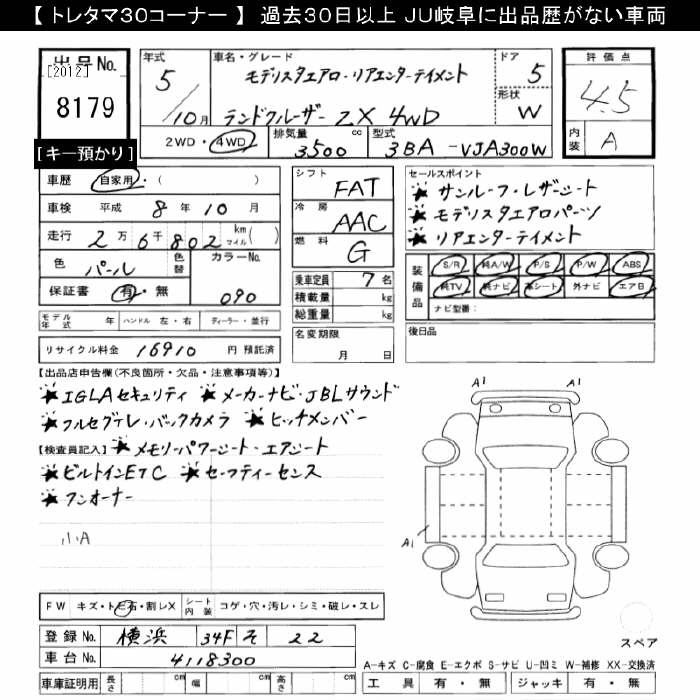 【 トレタマ30コーナー 】 過去30日以上 JU岐阜に出品歴がない車両
出品No.
[2012]
8179
[キー預かり]
年式
5
10月
車名・グレード
モデリスタエアロ・リアエンターテイメント
ランドクルーザー ZX 4WD
ドア
5
形状
W
2WD・4WD
排気量
3500 cc
型式
3BA-VJA300W
評価点
4.5
内装
A
車歴 自家用・( )
車検 平成 8年 10月
走行 2万6千802 km マイル( )
色 パール 色替 カラーNo. 090
保証書 有・無
モデル年式 年 ハンドル 左・右 ディーラー・並行
リサイクル料金 16910 円 預託済
シフト FAT
冷房 AAC
燃料 G
乗車定員 7名
積載量 kg
総重量 kg
名変期限 月 日
セールスポイント
★サンルーフ・レザーシート
★モデリスタエアロパーツ
★リアエンターテイメント
装備品 S/R 純A/W P/S P/W ABS
純TV 純ナビ 革シート 外ナビ エアB
ナビ型番:
後日品
【出品店申告欄(不良箇所・欠品・注意事項等)】
★IGLAセキュリティ ★メーカーナビ・JBLサウンド
★フルセグテレ・バックカメラ ★ヒッチメンバー
【検査員記入】 ★メモリーパワーシート・エアシート
★ビルトインETC ★セーフティーセンス
★ワンオーナー
小A
A1 A1
A1
FW キズ・トビ石・割レX シート内装 コゲ・穴・汚レ・シミ・破レ・スレ
登録No. 横浜 34F そ 22
車台No. 4118300
車庫証明用 長さ cm 幅 cm 高さ cm
スペア
A-キズ C-腐食 E-エクボ S-サビ U-凹ミ W-補修 XX-交換済
工具 有・無 ジャッキ 有・無